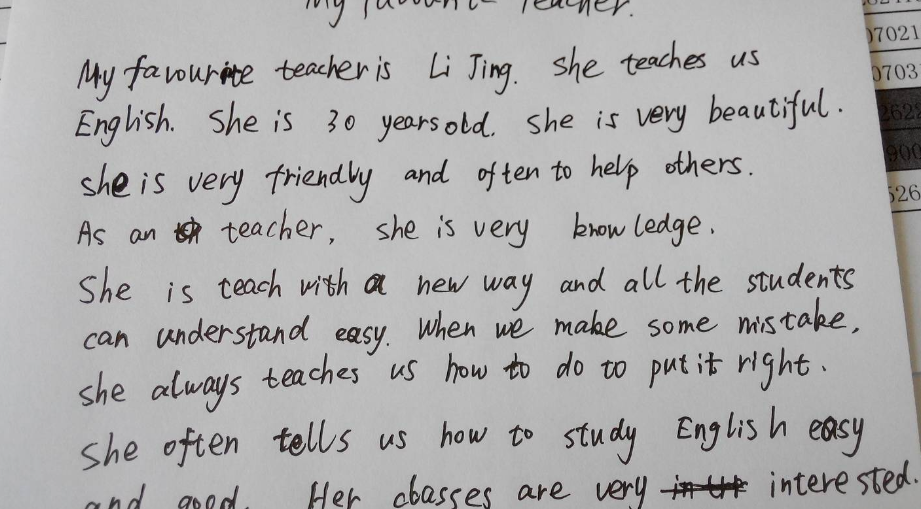 My favourite Teacher.
My favourite teacher is Li Jing. She teaches us
English. She is 30 years old. She is very beautiful.
she is very friendly and often to help others.
As an teacher, she is very knowledge.
She is teach with a new way and all the students
can understand easy. When we make some mistake,
she always teaches us how to do to put it right.
She often tells us how to study English easy
and good. Her classes are very interested.
07021
0703
262
900
526